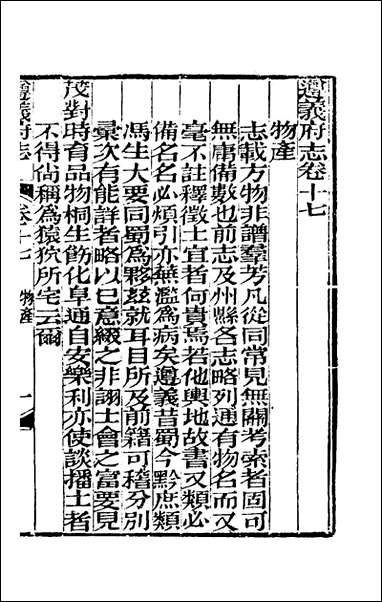 遵義府志卷十七
物產
志載方物非譜羣芳凡從同常見無關考索者固可
無庸備數也前志及州縣各志略列通有物名而又
毫不註釋徵土宜者何貴焉若他輿地故書又類必
備名名必煩引亦蕪濫為病矣遵義昔蜀今黔庶類
馮生大要同蜀為夥玆就耳目所及前籍可稽分別
彙次有能詳者略以已意綴之非詡土會之富要見
茂對時育品物桐生飭化阜通自安樂利亦使談播土者
不得尙稱為猿狖所宅云爾
遵義府志
卷十七
物產
一